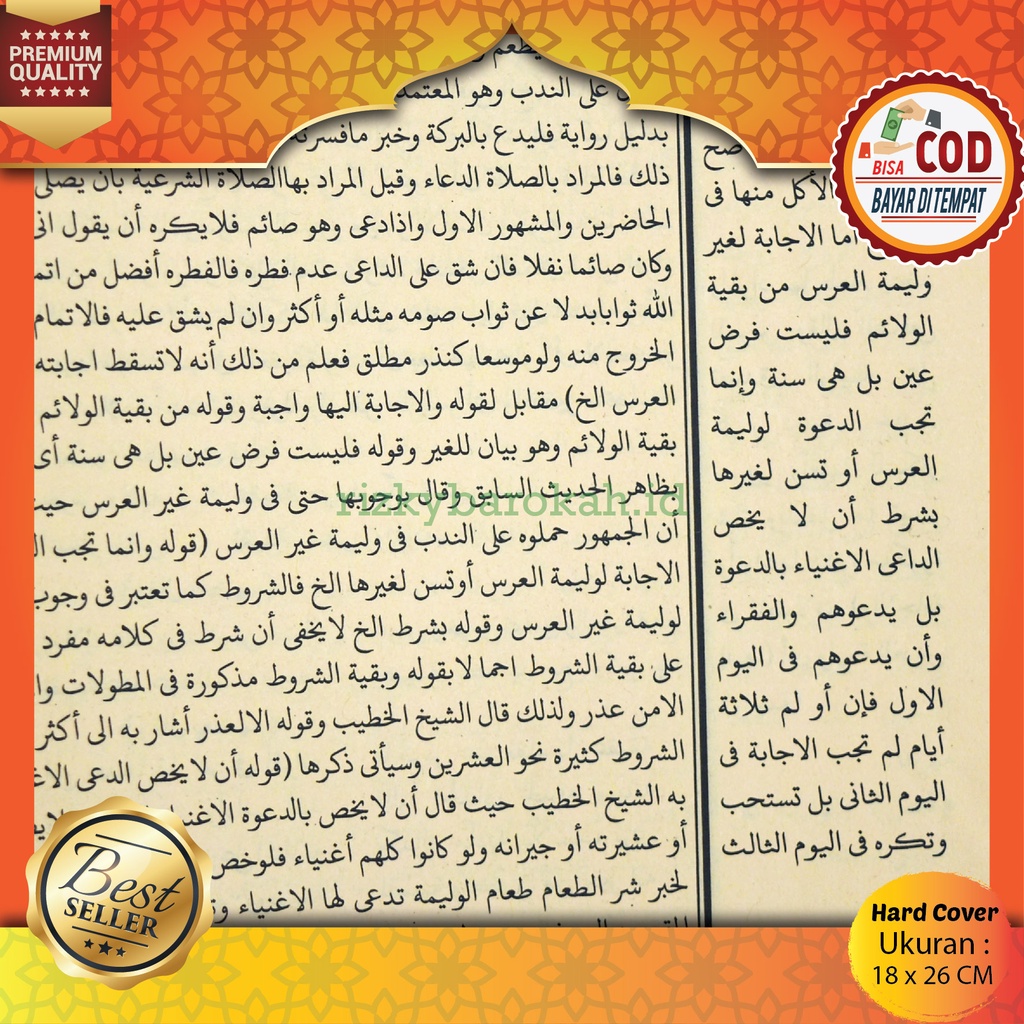 PREMIUM
QUALITY
BISA COD
BAYAR DI TEMPAT
صح
الأكل منها فى
اما الاجابة لغير
وليمة العرس من بقية
الولائم فليست فرض
عين بل هى سنة وإنما
تجب الدعوة لوليمة
العرس أو تسن لغيرها
بشرط أن لا يخص
الداعى الاغنياء بالدعوة
بل يدعوهم والفقراء
وأن يدعوهم فى اليوم
الاول فإن أو لم ثلاثة
أيام لم تجب الاجابة فى
اليوم الثانى بل تستحب
وتكره فى اليوم الثالث
على الندب وهو المعتمد
بدليل رواية فليدع بالبركة وخبر مافسرته
ذلك فالمراد بالصلاة الدعاء وقيل المراد بهاالصلاة الشرعية بان يصلى
الحاضرين والمشهور الاول واذادعى وهو صائم فلايكره أن يقول انى
وكان صائما نفلا فان شق على الداعى عدم فطره فالفطره أفضل من اتم
الله ثوابابد لا عن ثواب صومه مثله أو أكثر وان لم يشق عليه فالاتمام
الخروج منه ولوموسعا كنذر مطلق فعلم من ذلك أنه لاتسقط اجابته
العرس الخ) مقابل لقوله والاجابة اليها واجبة وقوله من بقية الولائم
بقية الولائم وهو بيان للغير وقوله فليست فرض عين بل هى سنة أى
بظاهر الحديث السابق وقال بوجوبها حتى فى وليمة غير العرس حيث
أن الجمهور حملوه على الندب فى وليمة غير العرس (قوله وانما تجب ال
الاجابة لوليمة العرس أوتسن لغيرها الخ فالشروط كما تعتبر فى وجوب
لوليمة غير العرس وقوله بشرط الخ لايخفى أن شرط فى كلامه مفرد
على بقية الشروط اجما لابقوله وبقية الشروط مذكورة فى المطولات وا
الامن عذر ولذلك قال الشيخ الخطيب وقوله الالعذر أشار به الى أكثر
الشروط كثيرة نحو العشرين وسيأتى ذكرها (قوله أن لايخص الدعى الاغ
به الشيخ الخطيب حيث قال أن لايخص بالدعوة الاغنيا
أو عشيرته أو جيرانه ولو كانوا كلهم أغنياء فلوخص
لخبر شر الطعام طعام الوليمة تدعى لها الاغنياء
rizkybarokah.id
Best
SELLER
Hard Cover
Ukuran :
18 x 26 CM